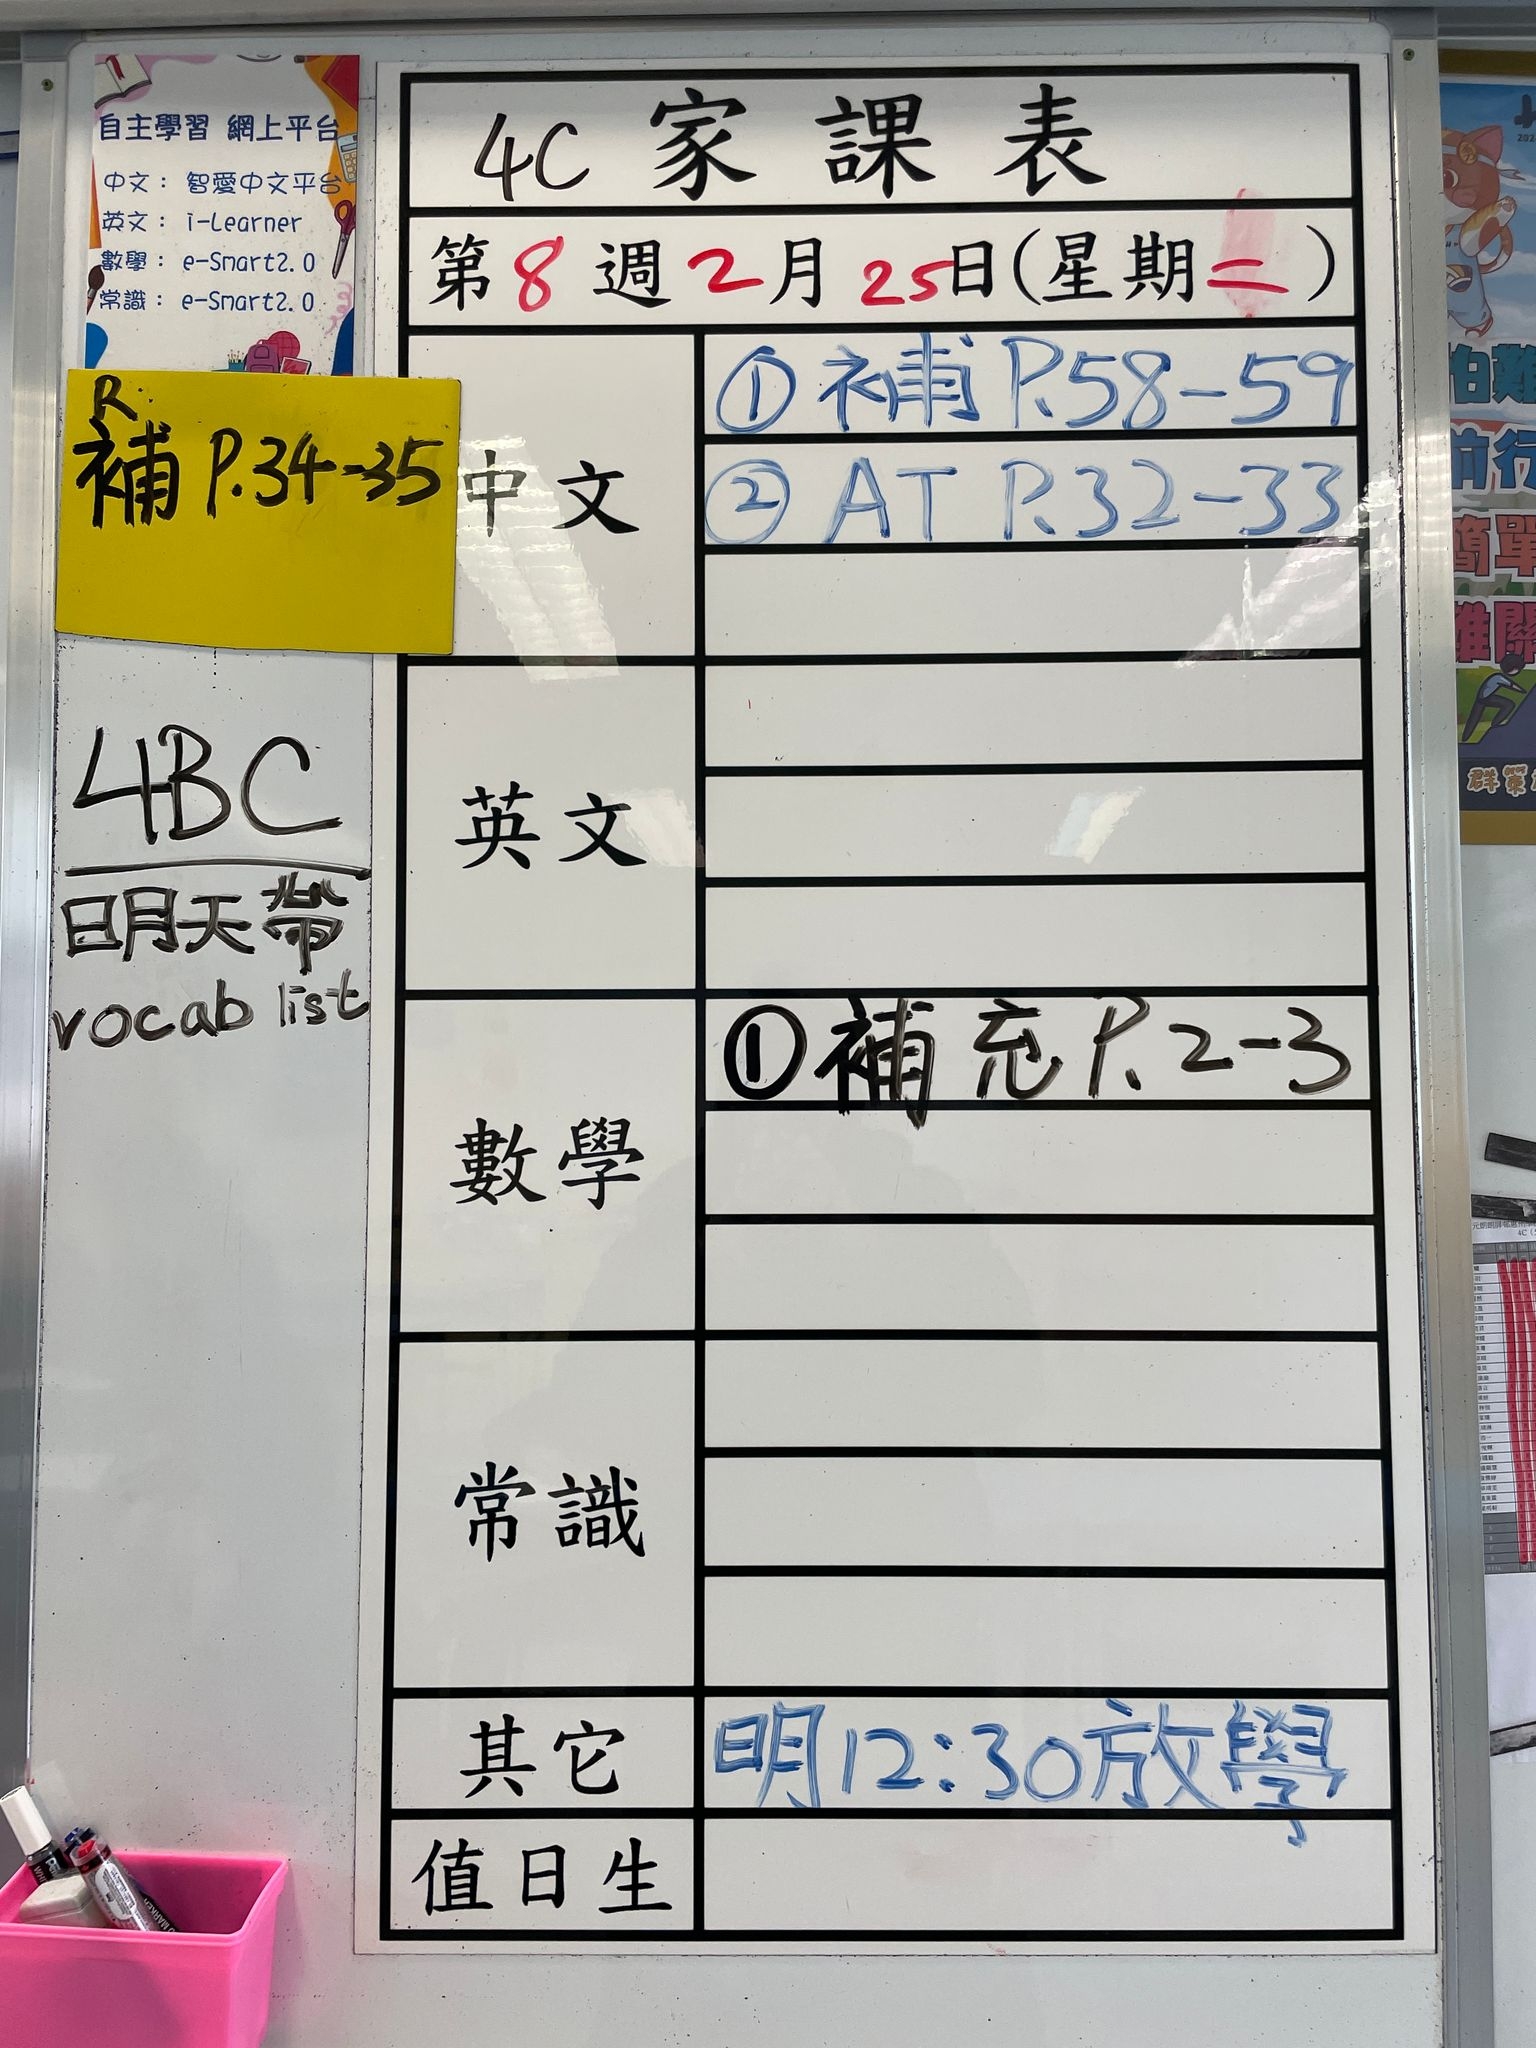 自主學習 網上平台
中文： 智愛中文平台
英文： i-Learner
數學： e-Smart2.0
常識： e-Smart2.0
R.
補 P.34-35
4BC
明天帶
vocab list
4C 家課表
第 8 週 2 月 25 日(星期二)
中文
① 補 P.58-59
② AT P.32-33
英文
數學
① 補充 P.2-3
常識
其它
明12:30放學
值日生
前行
簡單
難關